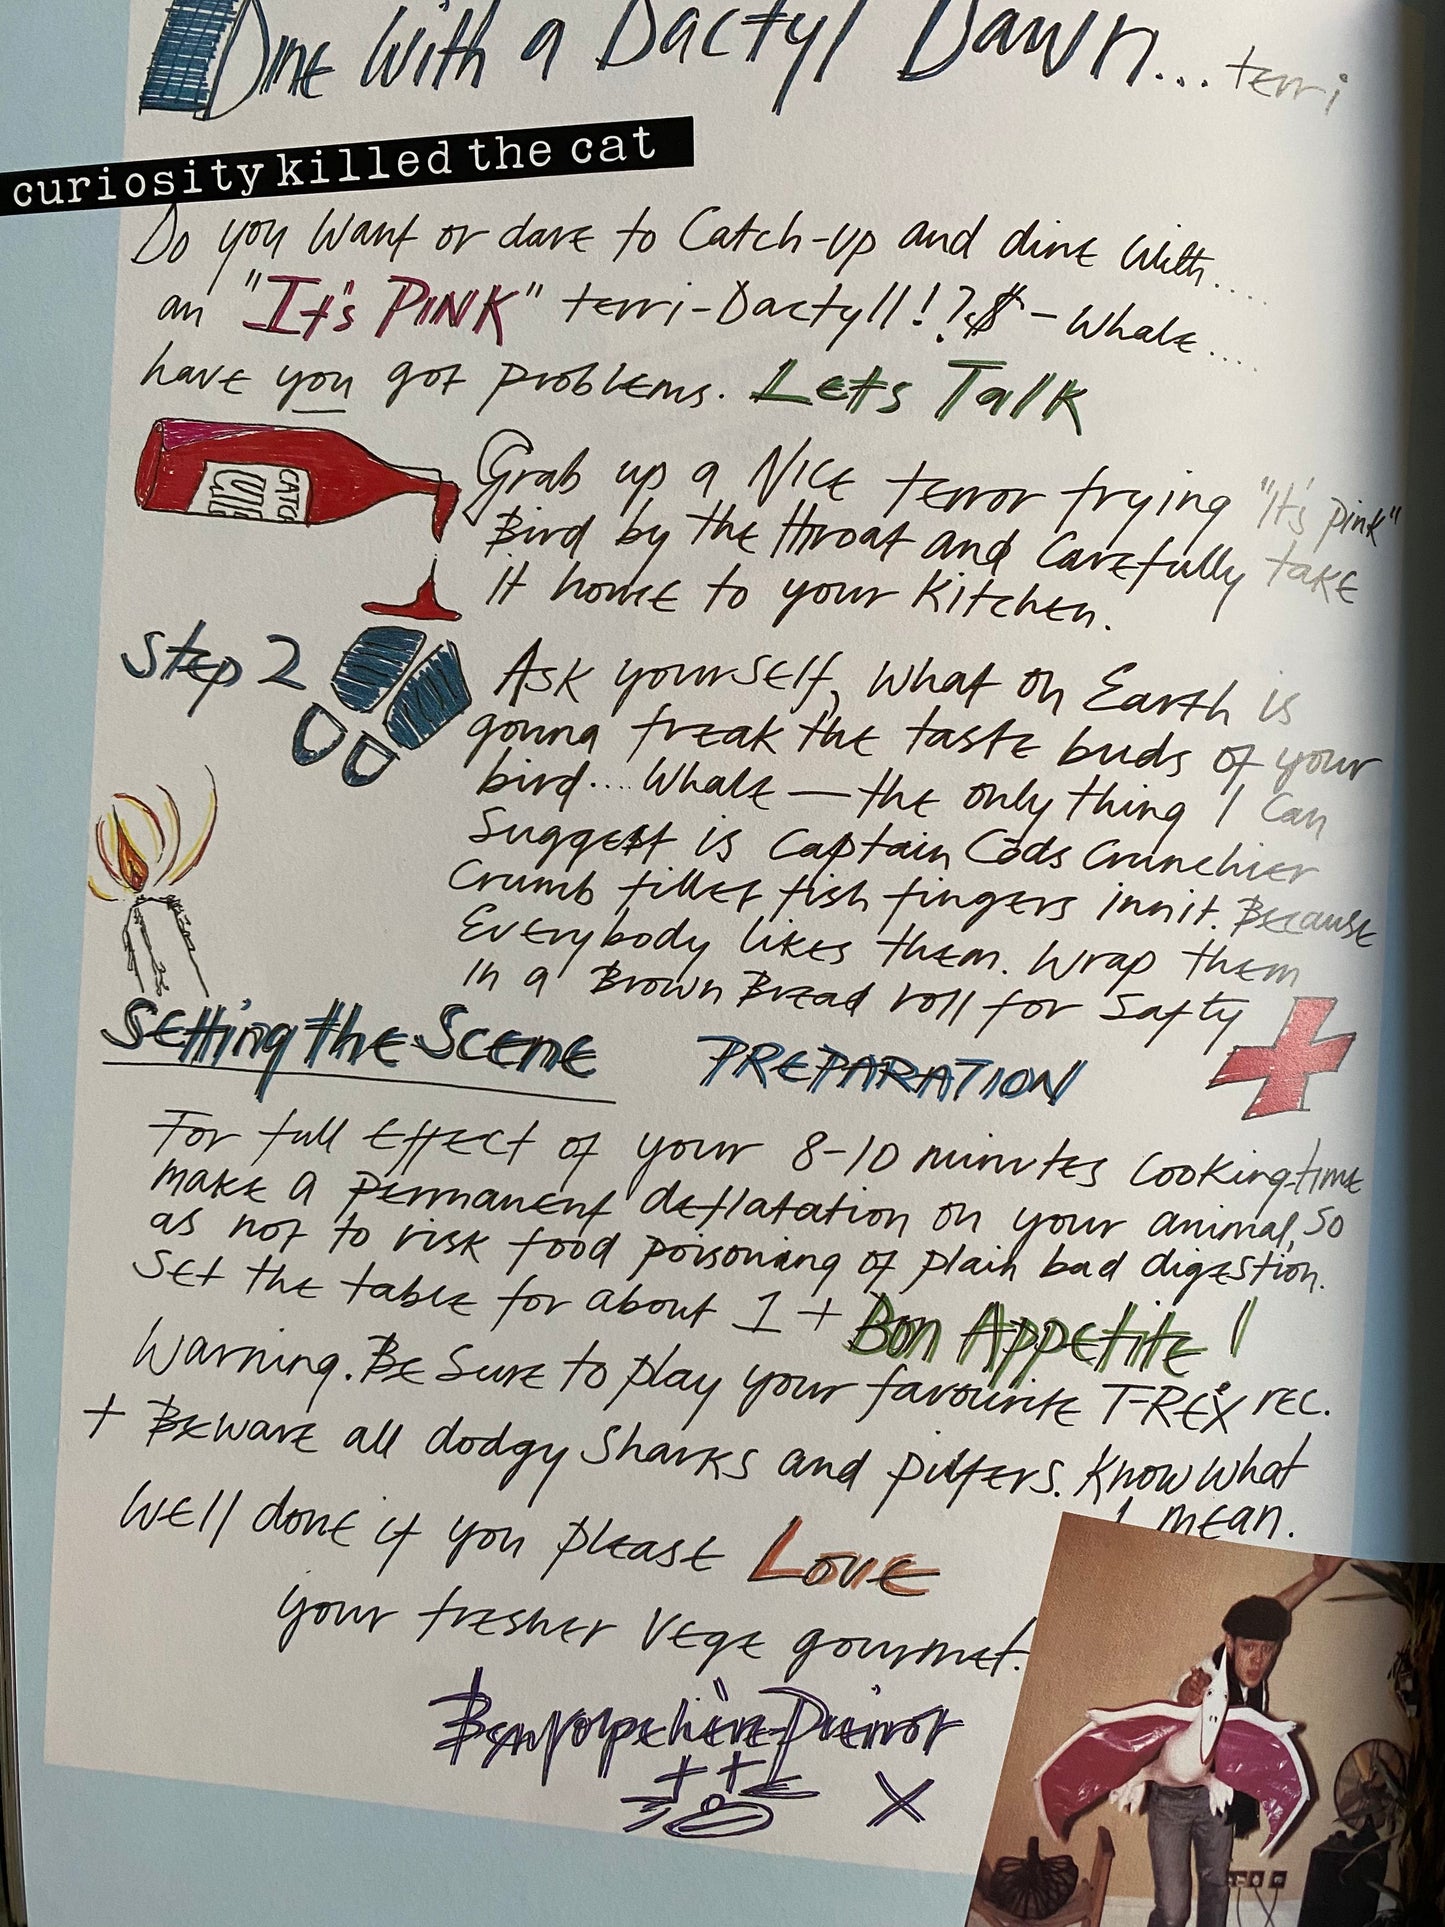 Dine With a Dactyl Dawn... terri
curiosity killed the cat
Do you want or dare to Catch-up and dine with....
an "It's PINK" terri-Dactyll!?$ - Whale....
have you got problems. Lets Talk
Grab up a Nice terror trying "It's pink"
Bird by the throat and carefully take
it home to your Kitchen.
CATCH
Step 2
Ask yourself, what on Earth is
gonna freak the taste buds of your
bird.... Whale — the only thing I can
suggest is Captain Cods Crunchier
Crumb fillet fish fingers innit. Because
Everybody likes them. Wrap them
in a Brown Bread roll for Safty
Setting the Scene PREPARATION
For full effect of your 8-10 minutes cooking-time
make a permanent deflatation on your animal, so
as not to risk food poisoning of plain bad digestion.
Set the table for about 1 + Bon Appetite!
Warning. Be Sure to play your favourite T-REX rec.
+ Beware all dodgy Sharks and pilfers. Know what
I mean.
Well done if you please Love
your fresher Vege gourmet.
X